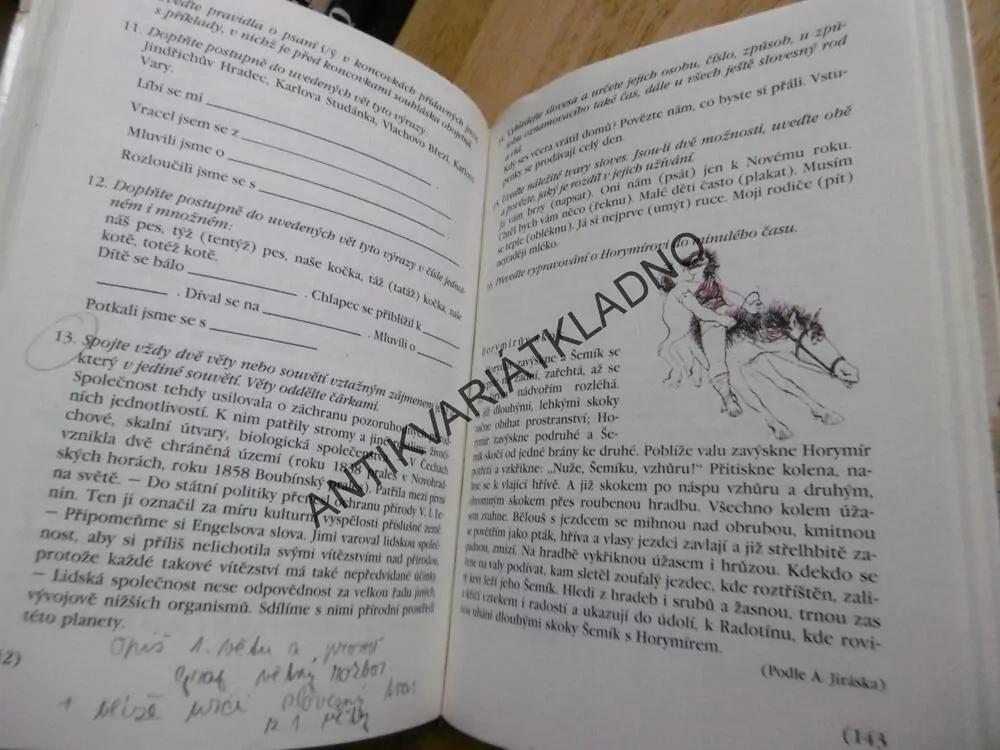 veďte pravidla o psaní i/ý v koncovkách přídavných jmen
s příklady, v nichž je před koncovkami souhláska obojetná.
11. Doplňte postupně do uvedených vět tyto výrazy:
Jindřichův Hradec, Karlova Studánka, Vlachovo Březí, Karlovy
Vary.
Líbí se mi
Vracel jsem se z
Mluvili jsme o
Rozloučili jsme se s
12. Doplňte postupně do uvedených vět tyto výrazy v čísle jednot-
ném i množném:
náš pes, týž (tentýž) pes, naše kočka, táž (tatáž) kočka, naše
kotě, totéž kotě.
Dítě se bálo . Chlapec se přiblížil k
. Díval se na . Mluvili o
Potkali jsme se s
13. Spojte vždy dvě věty nebo souvětí vztažným zájmenem
který v jediné souvětí. Věty oddělte čárkami.
Společnost tehdy usilovala o záchranu pozoruhodných
ních jednotlivostí. K nim patřily stromy a jiné živoči-
chové, skalní útvary, biologická společenstva. V Čechách
vznikla dvě chráněná území (roku 1838 prales v Novohrad-
ských horách, roku 1858 Boubínský prales). Patřila mezi první
na světě. — Do státní politiky ochranu přírody V. I. Le-
nin. Ten ji označil za míru kulturní vyspělosti příslušné země.
— Připomeňme si Engelsova slova. Jimi varoval lidskou společ-
nost, aby si příliš nelichotila svými vítězstvími nad přírodou,
protože každé takové vítězství má také nepředvídané účinky.
— Lidská společnost nese odpovědnost za velkou řadu jiných,
vývojově nižších organismů. Sdílíme s nimi přírodní prostředí
této planety.
Opiš 1. větu a
graf větný rozbor
2)
14. Vyhledejte slovesa a určete jejich osobu, číslo, způsob, u způ-
sobu oznamovacího také čas, dále u všech ještě slovesný rod
Kdy ses včera vrátil domů? Povězte nám, co byste si přáli. Vstu-
penky se prodávají celý den.
15. Uveďte náležité tvary sloves. Jsou-li dvě možnosti, uveďte obě
a povězte, jaký je rozdíl v jejich užívání.
Já vám brzy (napsat). Oni nám (psát) jen k Novému roku.
Chtěl bych vám něco (řeknu). Malé děti často (plakat). Musím
se teple (obléknu). Já si nejprve (umýt) ruce. Moji rodiče (pít)
nejraději mléko.
16. Převeďte vypravování o Horymírovi do minulého času.
zavýskne a Šemík se
zadní, zařehtá, až se
nádvořím rozléhá.
dlouhými, lehkými skoky
obíhat prostranství; Ho-
zavýskne podruhé a Še-
mík skočí od jedné brány ke druhé. Poblíže valu zavýskne Horymír
potřetí a vzkřikne: „Nuže, Šemíku, vzhůru!“ Přitiskne kolena, na-
hne se k vlající hřívě. A již skokem po náspu vzhůru a druhým,
ohromným skokem přes roubenou hradbu. Všechno kolem úža-
sem ztuhne. Bělouš s jezdcem se mihnou nad obrubou, kmitnou
se povětřím jako pták, hříva a vlasy jezdci zavlají a již střelhbitě za-
padnou, zmizí. Na hradbě vykřiknou úžasem i hrůzou. Kdekdo se
na valy podívat, kam sletěl zoufalý jezdec, kde roztříštěn, zali-
krví leží jeho Šemík. Hledí z hradeb i srubů a žasnou, trnou zas
a křičí vztekem i radostí a ukazují do údolí, k Radotínu, kde rovi-
nou uhání dlouhými skoky Šemík s Horymírem.
(Podle A. Jiráska)
(143
ANTIKVARIÁTKLADNO